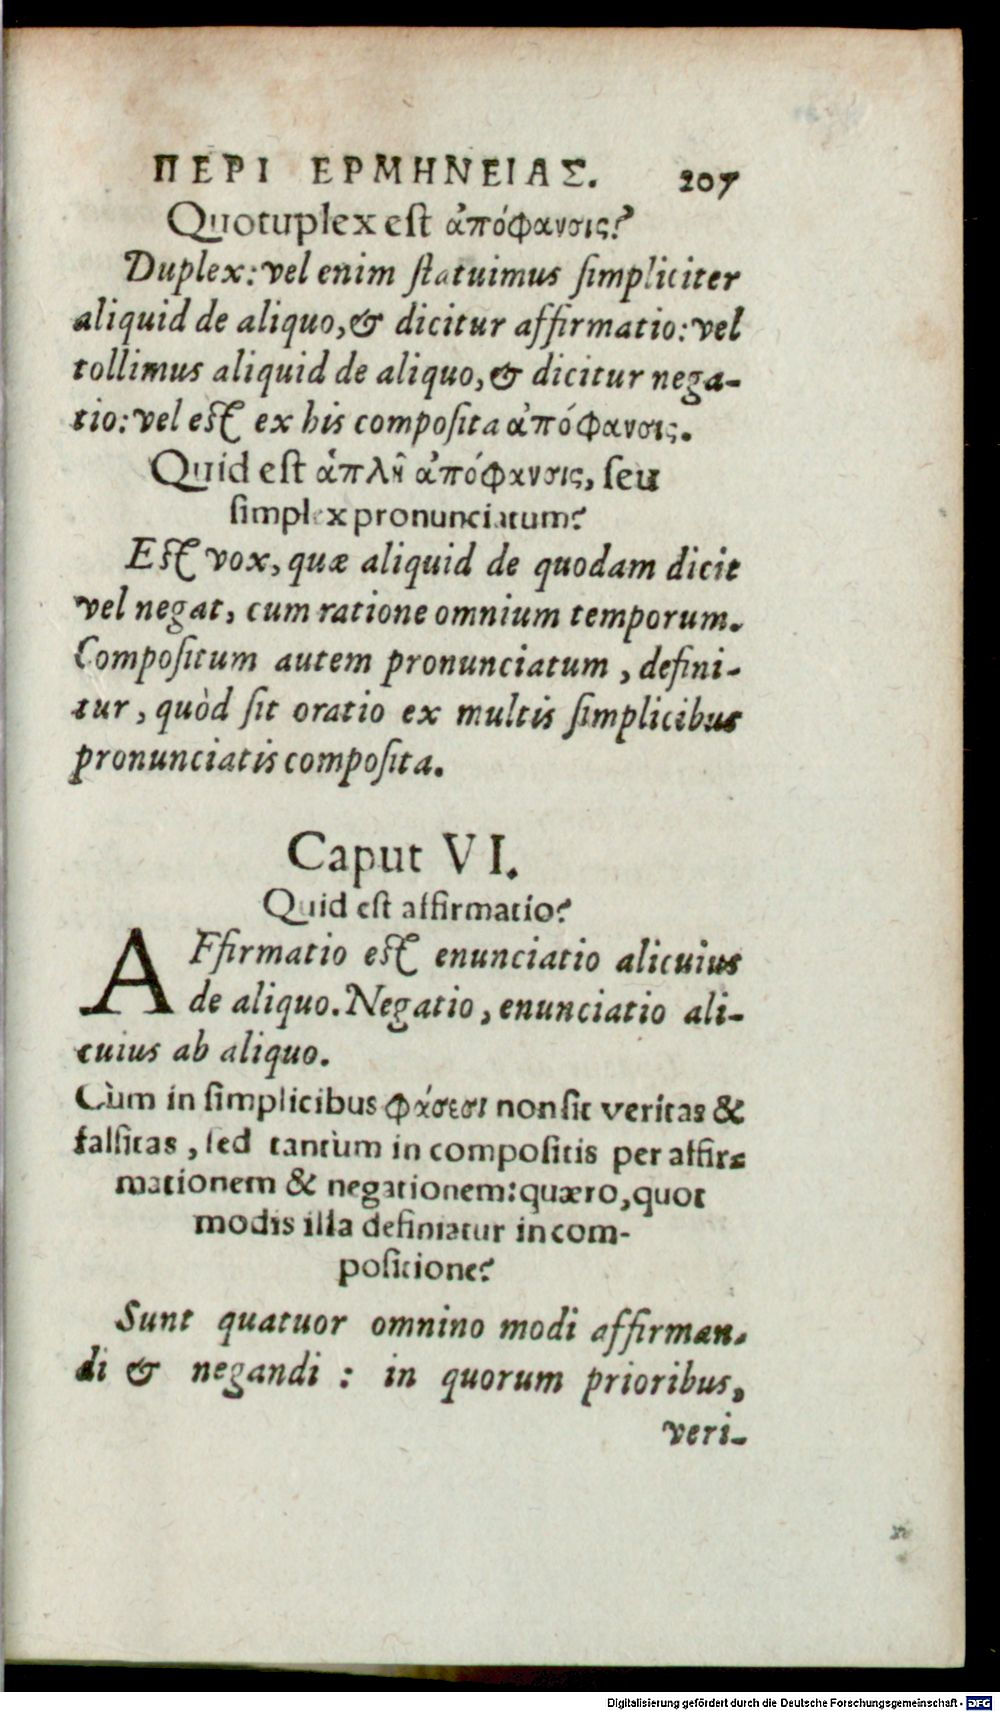 ΠΕΡΙ ΕΡΜΗΝΕΙΑΣ. 207
Quotuplex est ἀπόφανσις?
Duplex: vel enim statuimus simpliciter
aliquid de aliquo, & dicitur affirmatio: vel
tollimus aliquid de aliquo, & dicitur nega-
tio: vel est ex his composita ἀπόφανσις.
Quid est ἁπλῆ ἀπόφανσις, seu
simplex pronunciatum?
Est vox, quæ aliquid de quodam dicit
vel negat, cum ratione omnium temporum.
Compositum autem pronunciatum, defini-
tur, quòd sit oratio ex multis simplicibus
pronunciatis composita.
Caput VI.
Quid est affirmatio?
AFfirmatio est enunciatio alicuius
de aliquo. Negatio, enunciatio ali-
cuius ab aliquo.
Cùm in simplicibus φάσεσι non sit veritas &
falsitas, sed tantùm in compositis per affir-
mationem & negationem: quæro, quot
modis illa definiatur in com-
positione?
Sunt quatuor omnino modi affirman-
di & negandi: in quorum prioribus,
veri-
Digitalisierung gefördert durch die Deutsche Forschungsgemeinschaft - DFG